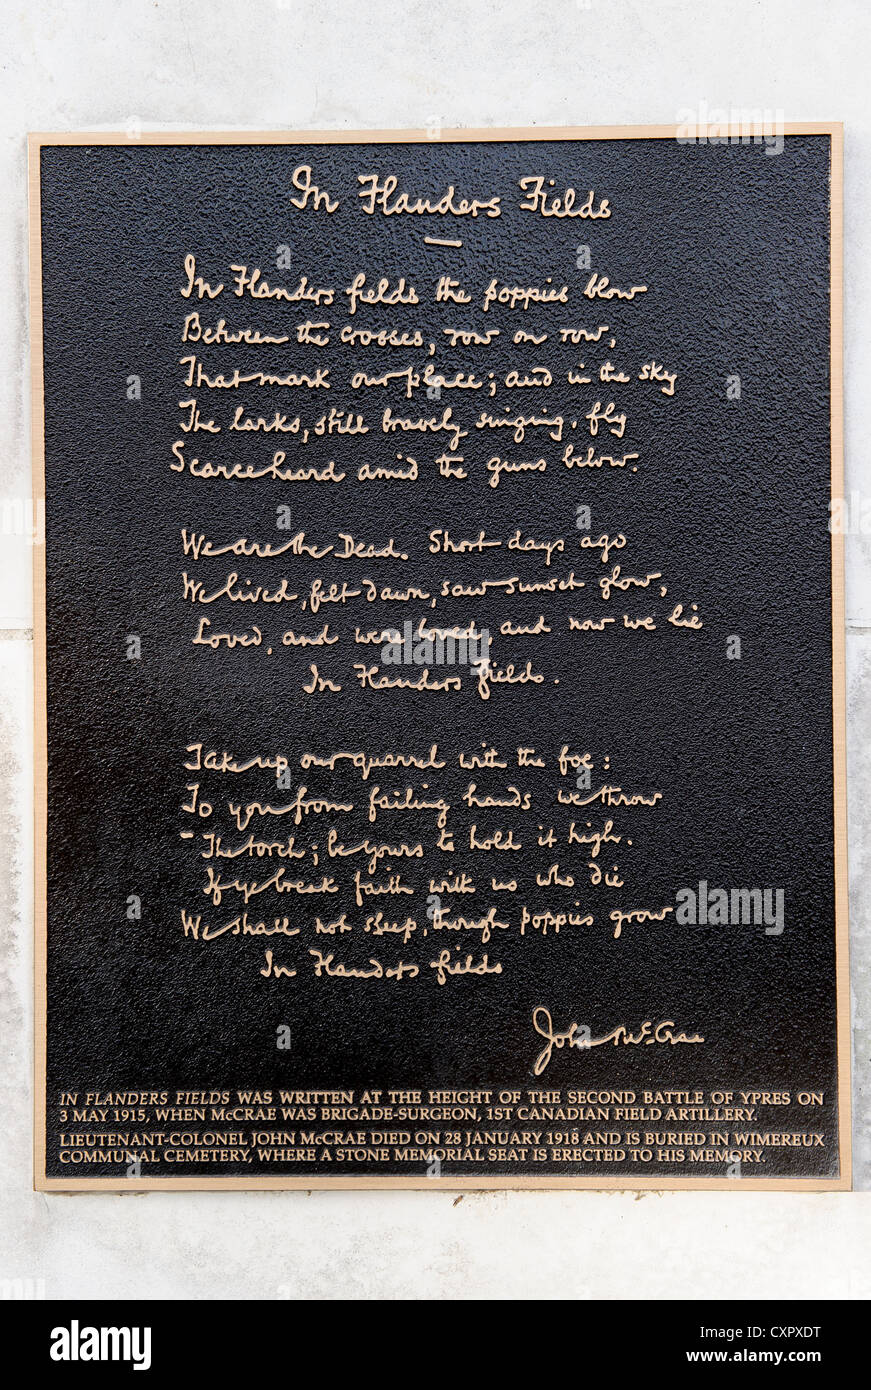 In Flanders Fields
In Flanders fields the poppies blow
Between the crosses, row on row,
That mark our place; and in the sky
The larks, still bravely singing, fly
Scarce heard amid the guns below.
We are the Dead. Short days ago
We lived, felt dawn, saw sunset glow,
Loved, and were loved, and now we lie
In Flanders fields.
Take up our quarrel with the foe:
To you from failing hands we throw
The torch; be yours to hold it high.
If ye break faith with us who die
We shall not sleep, though poppies grow
In Flanders fields
John McCrae
IN FLANDERS FIELDS WAS WRITTEN AT THE HEIGHT OF THE SECOND BATTLE OF YPRES ON
3 MAY 1915, WHEN McCRAE WAS BRIGADE-SURGEON, 1ST CANADIAN FIELD ARTILLERY.
LIEUTENANT-COLONEL JOHN McCRAE DIED ON 28 JANUARY 1918 AND IS BURIED IN WIMEREUX
COMMUNAL CEMETERY, WHERE A STONE MEMORIAL SEAT IS ERECTED TO HIS MEMORY.
alamy
a
alamy stock photo
CXPXDT
www.alamy.com